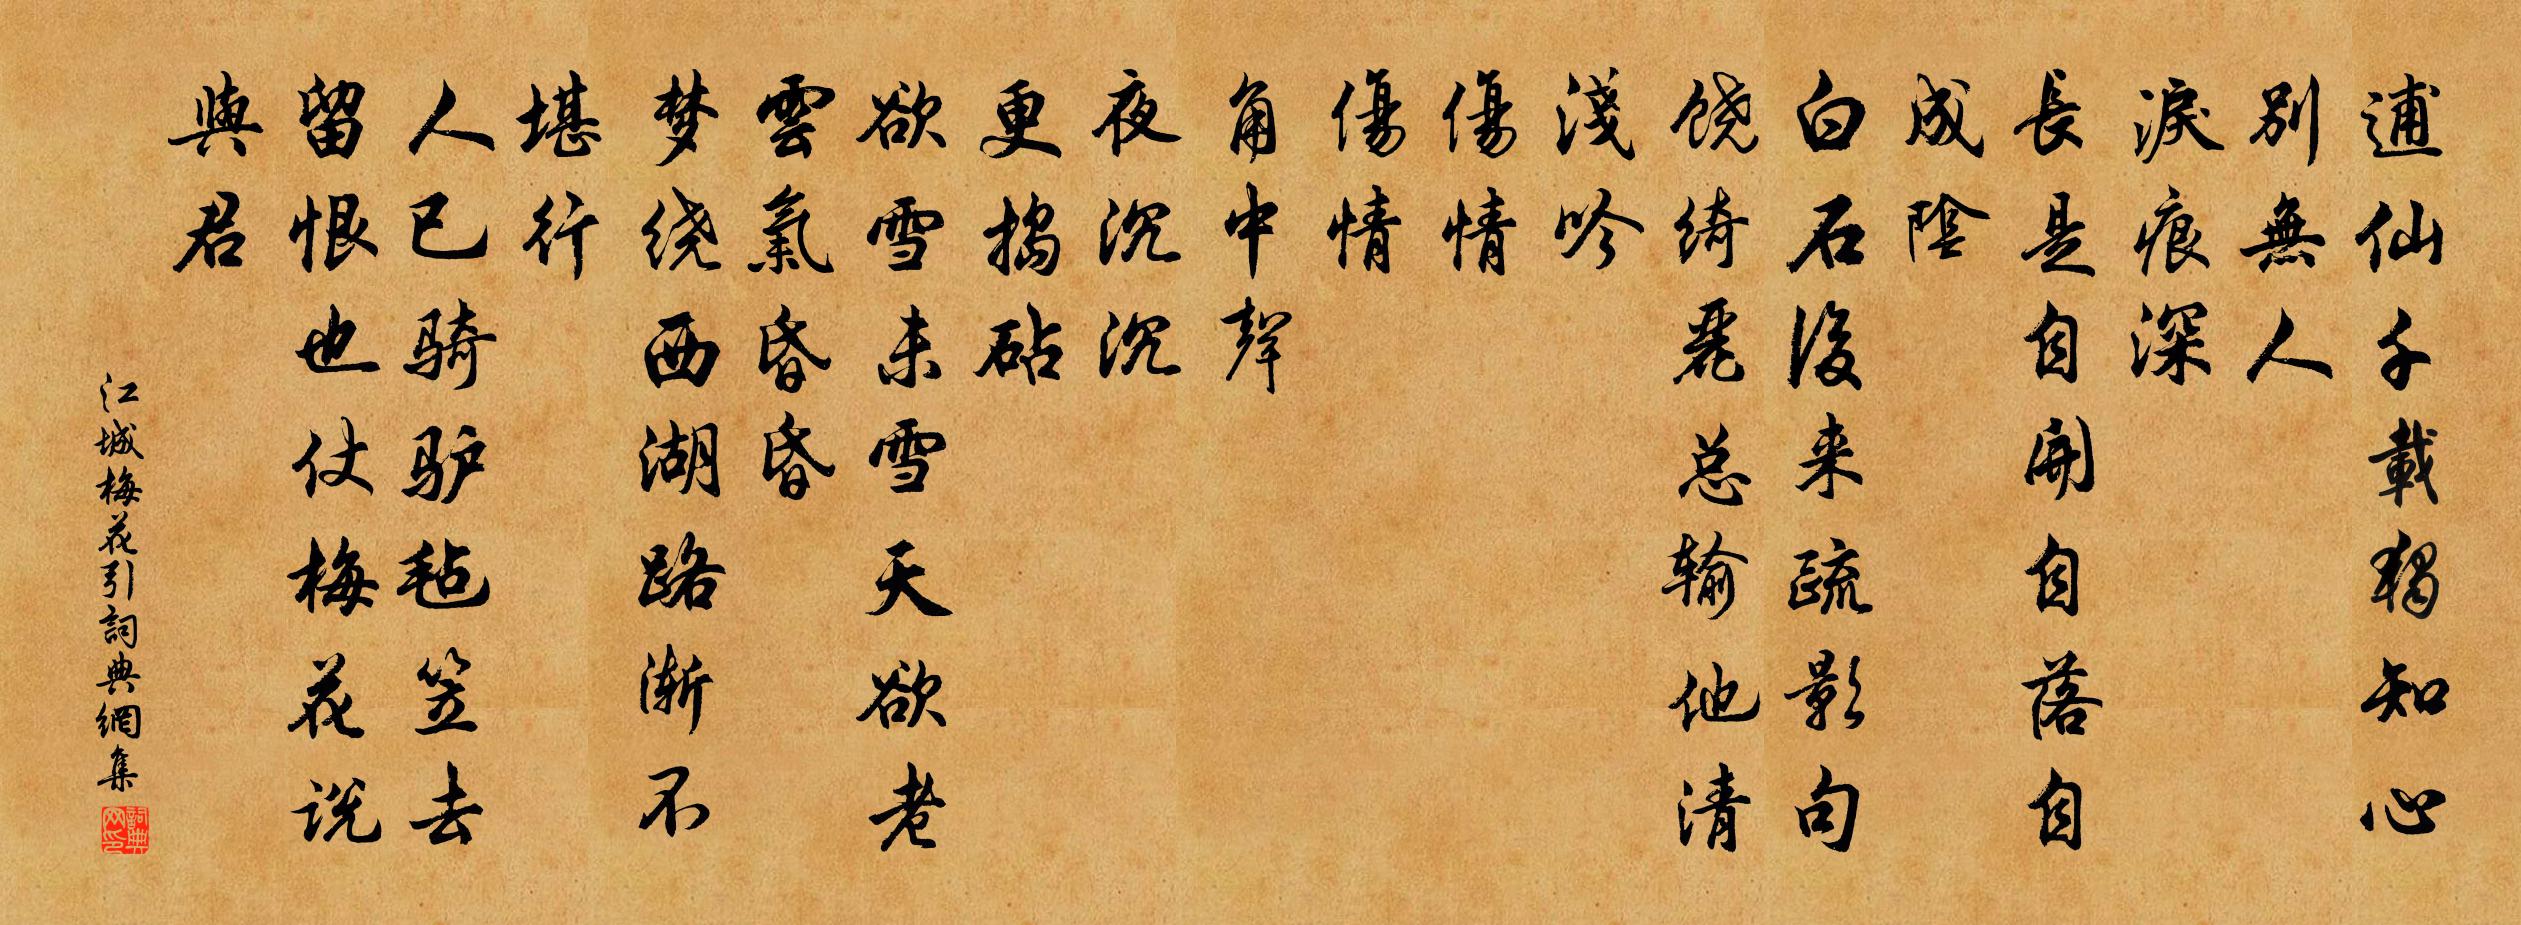 逋仙千載独知心
别無人
淚痕深
長是自開自落自
成陰
白石後来疏影句
饶绮麗总输他清
淺吟
傷情
傷情
角中聲
夜沉沉
更搗砧
欲雪未雪天欲老
雲氣昏昏
梦绕西湖路渐不
堪行
人已骑驴毡笠去
留恨也仗梅花说
與君
江城梅花引詞典網集
詞典网印